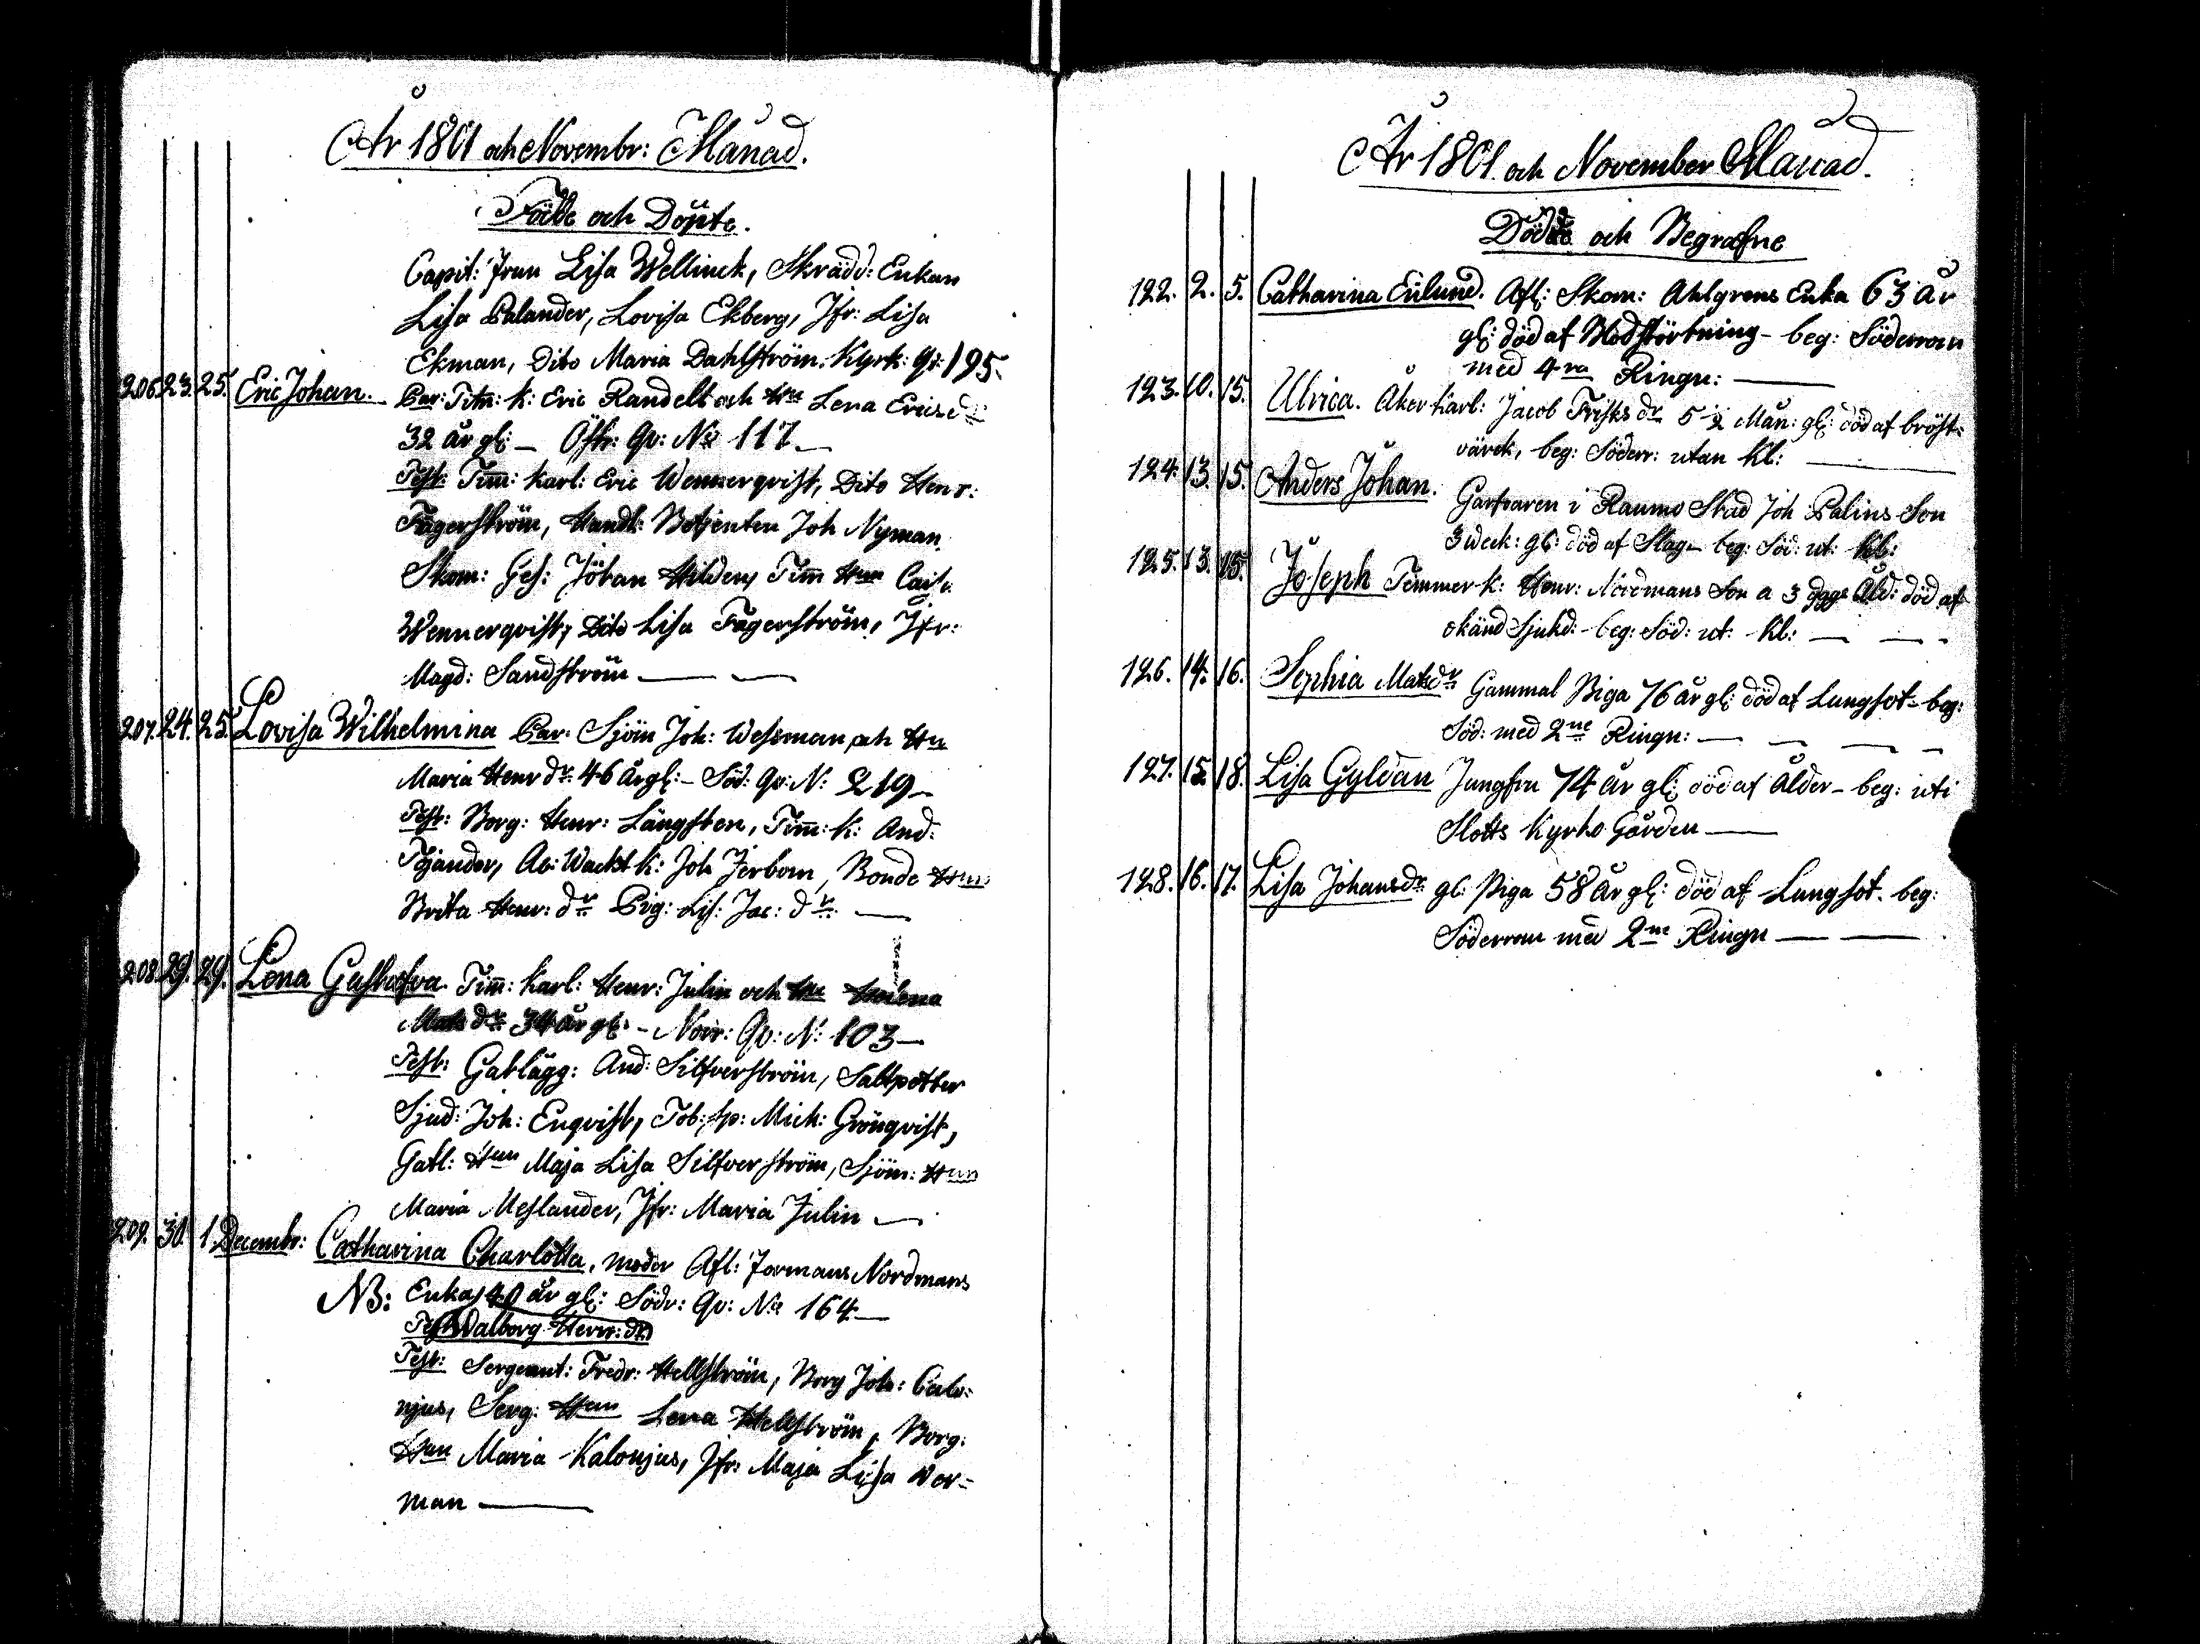 År 1801 och Novembr: Månad.
Födde och Döpte.
Capit: Frun Lisa Wellinck, Skrädd: Enkan
Lisa Palander, Lovisa Ekberg, Jfr: Lisa
Ekman, Dito Maria Dahlström. Kyrk: Qv: 195.
206. 23. 25. Eric Johan. Par: Tim: k: Eric Randell och Hu Lena Ericsdr
32 år gl: Östr: Qv: No 117
Test: Tim: karl: Eric Wennerqvist, Dito Henr:
Fägerström, Handl: Betjenten Joh Nyman,
Skom: Ges: Johan Hildens Timm Hun Caisa
Wennerqvist, Dito Lisa Fägerström, Jfr:
Magd: Sandström
207. 24. 25. Lovisa Wilhelmina Par: Sjöm Joh: Wessman och Hu
Maria Henr dr: 46 år gl: Söd: Qv: N: 219
Test: Borg: Henr: Långsten, Timm: k: And:
Tojander, Ac: Wackt k: Joh Jerbom, Bonde Hun
Brita Henr: dr Pig: Lis: Jac: dr
208. 29. 29. Lena Gustafva. Timm: karl: Henr: Julin och Hu Helena
Mats dr 34 år gl: Norr: Qv: N: 103
Test: Gatlägg: And: Silfverström, Saltpetter
Sjud: Joh: Enqvist, Tob: sp: Mich: Grönqvist,
Gatl: Hun Maja Lisa Silfverström, Sjöm: Hun
Maria Meslander, Jfr: Maria Julin
209. 30. 1 Decembr: Catharina Charlotta, moder Afl: Formans Nordmans
NB: Enka, 40 år gl: Södr: Qv: No 164
Test: Walborg Henr: dr
Test: Sergeant: Fredr: Hellström, Borg Joh: Calo-
njus, Serg: Hun Lena Hellström, Borg:
Hun Maria Kalonjus, Jfr: Maja Lisa Wer-
man
År 1801 och November Månad.
Döde och Begrafne
122. 2. 5. Catharina Enlund. Afl: Skom: Ahlgrens Enka 63 år
gl: död af Blodstörtning - beg: Söderrom
med 4ra Ringn:
123. 10. 15. Ulrica. Åker karl: Jacob Frisks dr 5 1/2 Mån: gl: död af bröst-
värck, beg: Söderr: utan kl:
124. 13. 15. Anders Johan. Garfvaren i Raumo Stad Joh Palins Son
3 weck: gl: död af Slag - beg: Söd: ut: kl:
125. 13. 15. Joseph Timmer k: Henr: Nordmans Son a 3 dygs Åld: död af
okänd Sjukd: - beg: Söd: ut: kl:
126. 14. 16. Sophia Matsdr Gammal Piga 76 år gl: död af Lungsot - beg:
Söd: med 2ne Ringn:
127. 15. 18. Lisa Gyldan Jungfru 74 år gl: död af Ålder - beg: uti
Slotts Kyrko Gården
128. 16. 17. Lisa Johansdr gl: Piga 58 år gl: död af Lungsot. beg:
Söderrom med 2ne Ringn